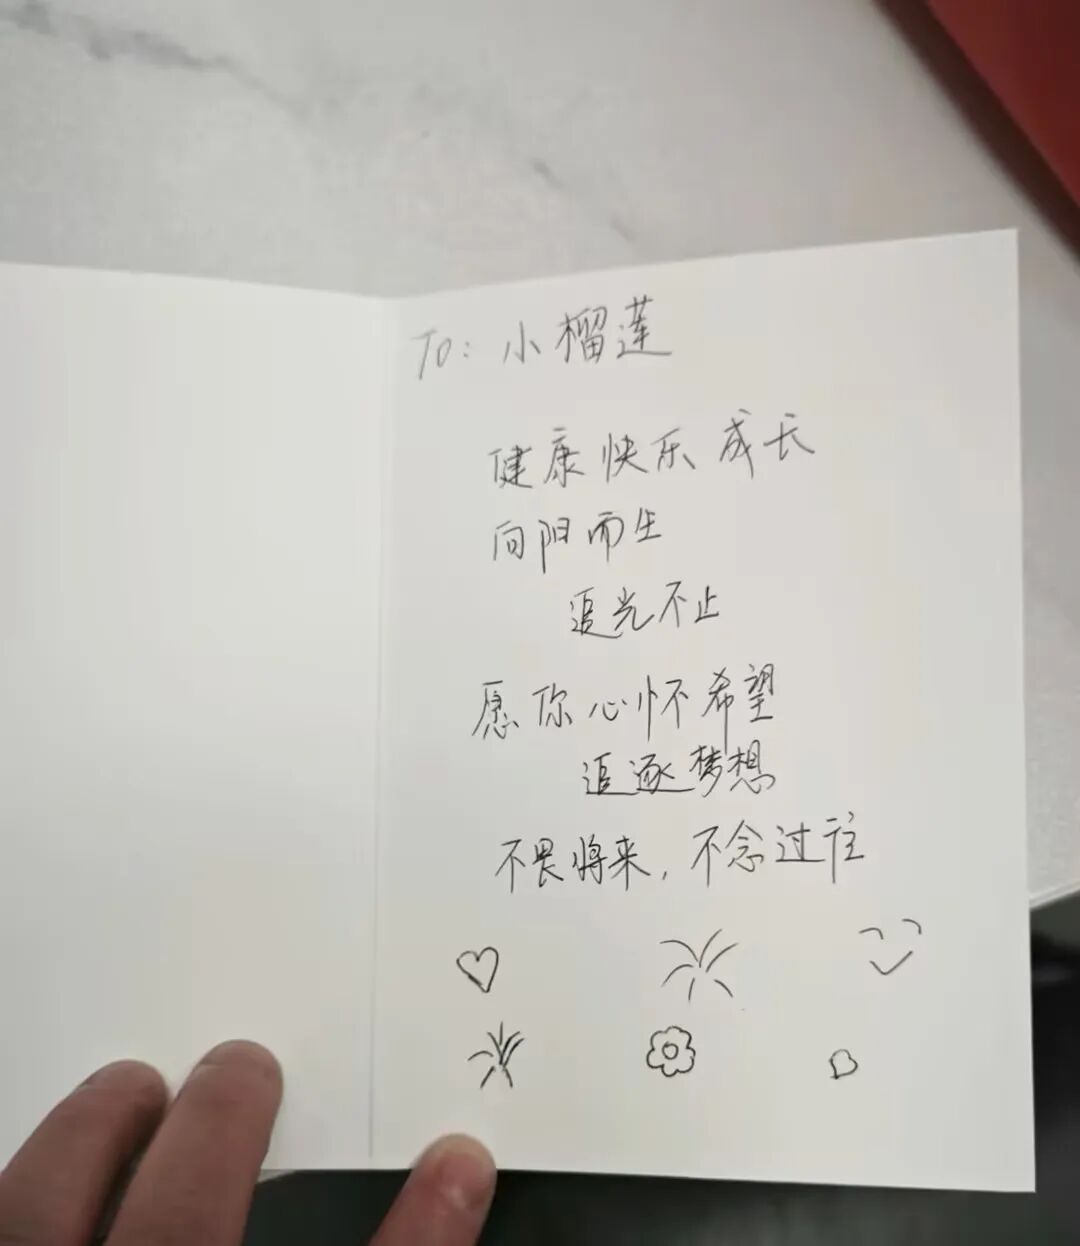 To: 小榴莲
健康快乐成长
向阳而生
追光不止
愿你心怀希望
追逐梦想
不畏将来,不念过往